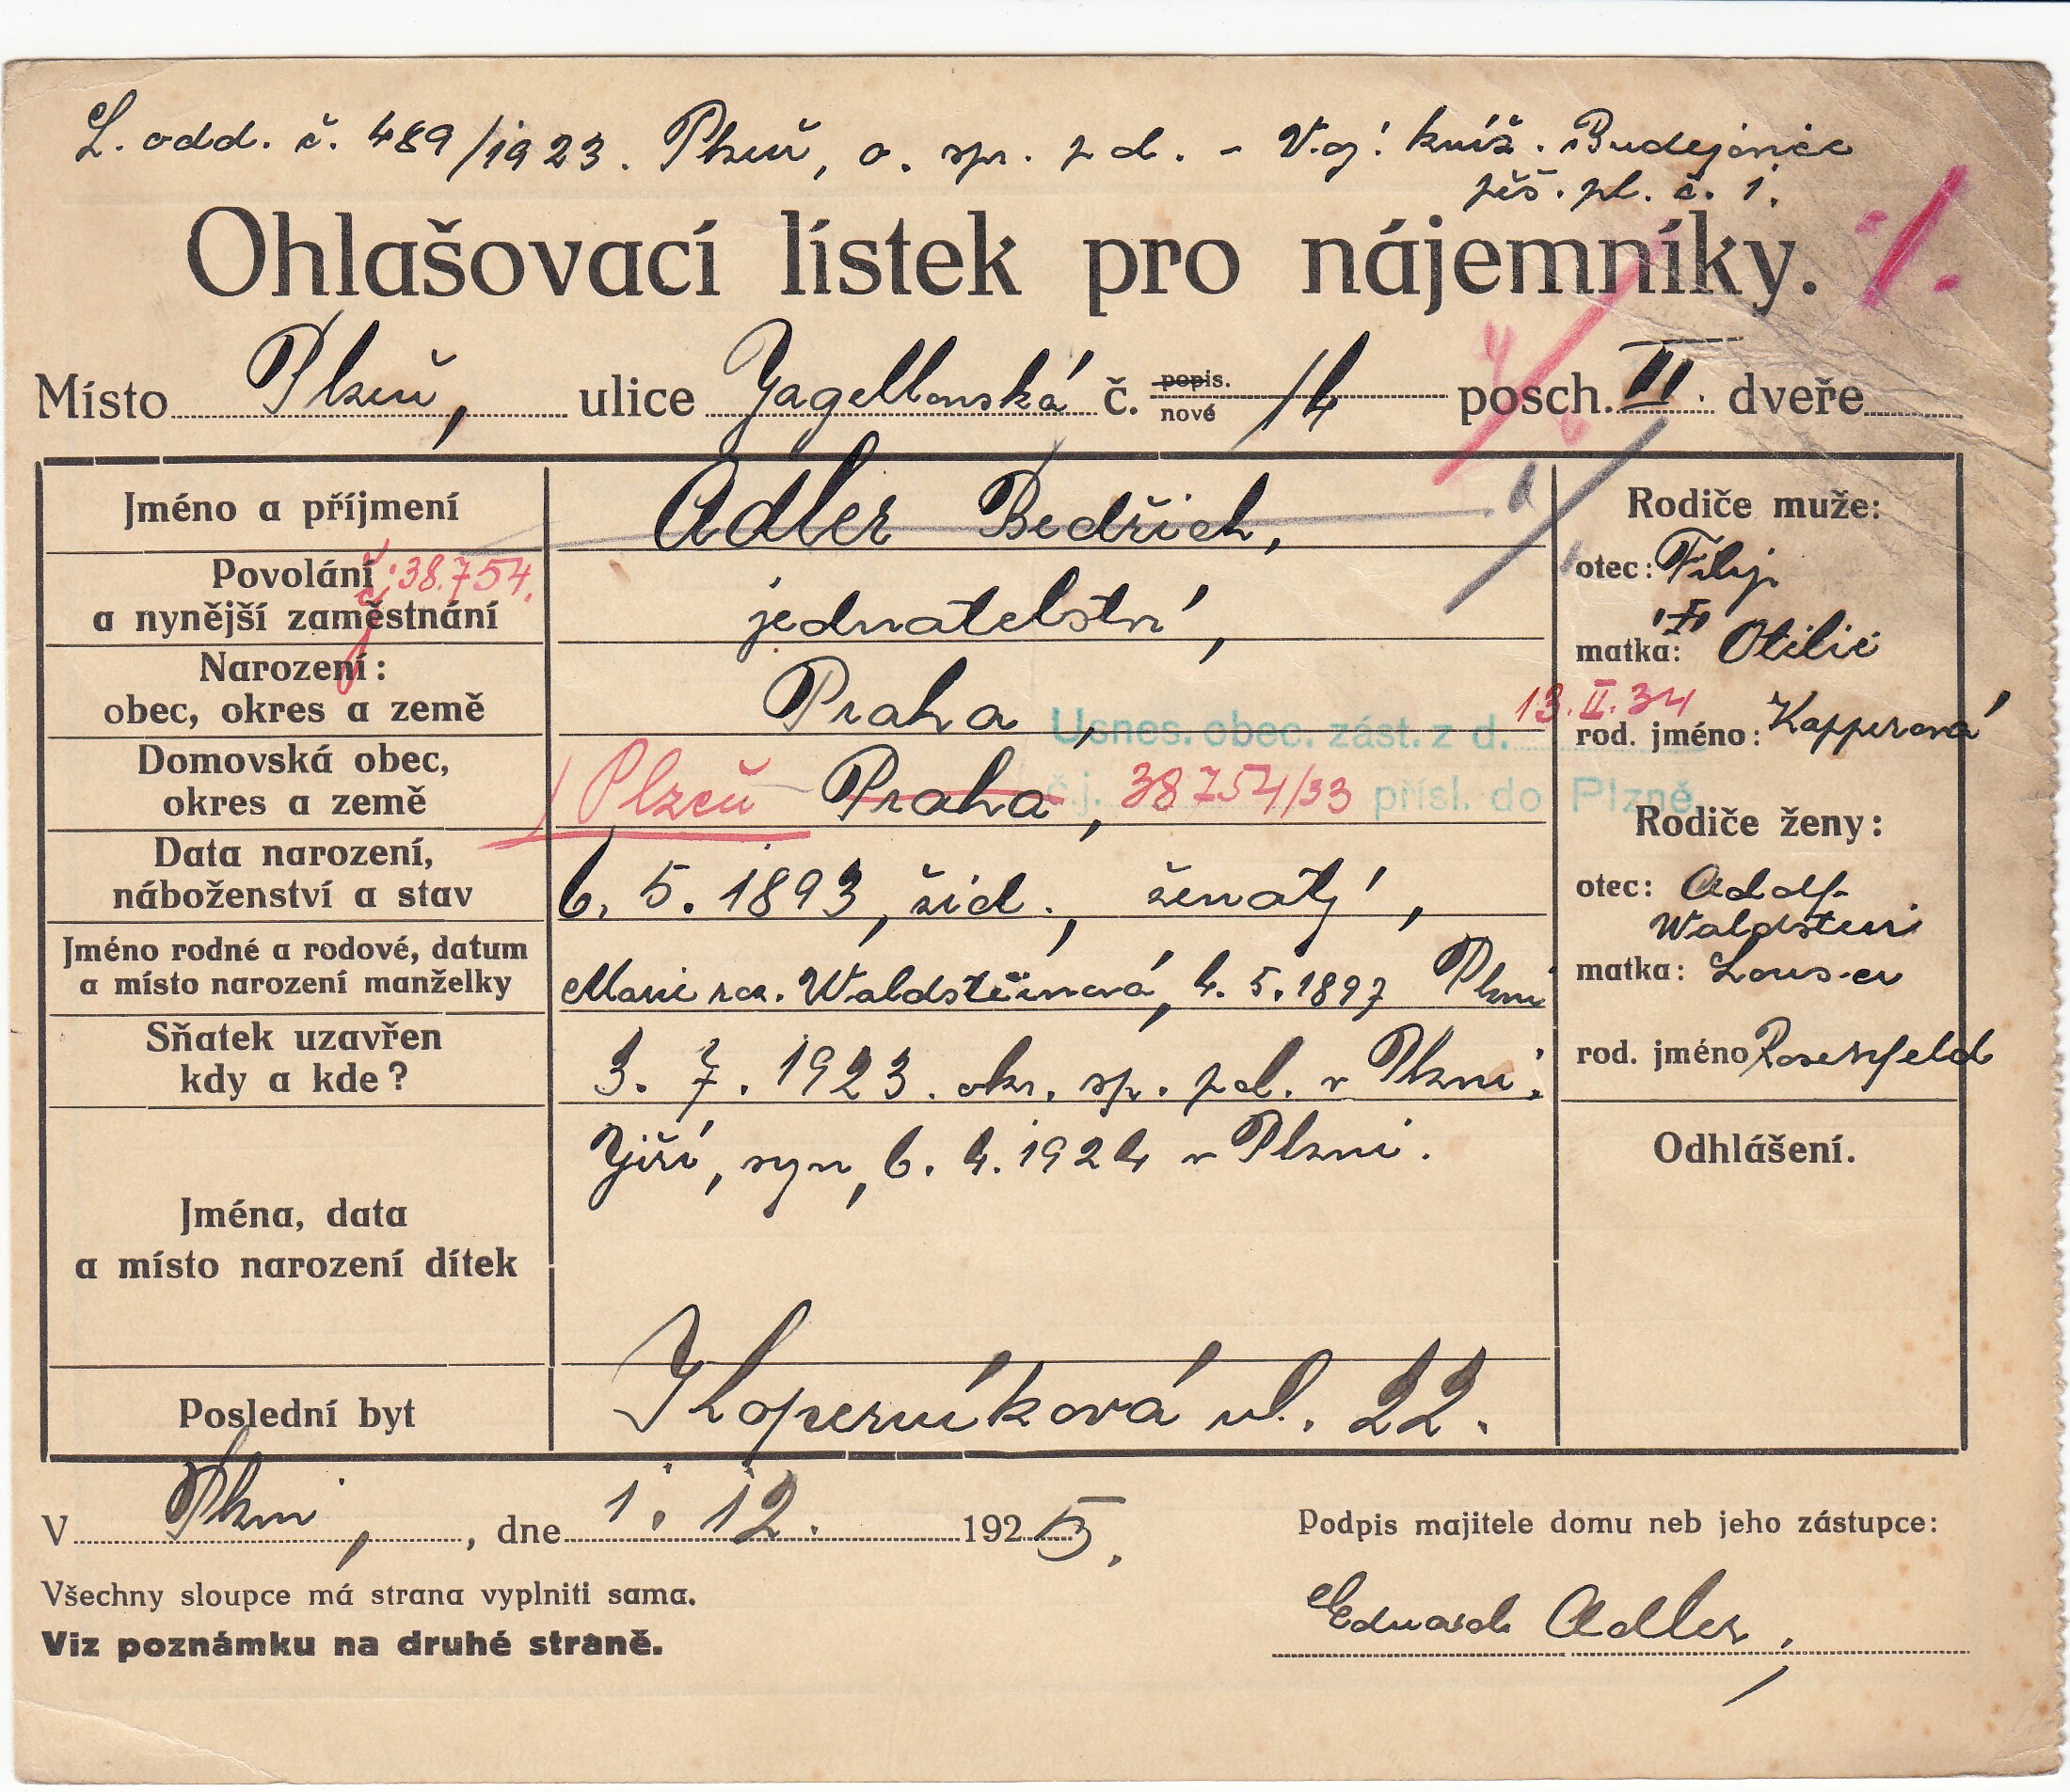 L. odd. č. 489/1923. Plzeň, o. spr. p d. - Voj. kníž. Budějovice
pěš. pl. č. 1.
Ohlašovací lístek pro nájemníky. 1.
Místo Plzeň, ulice Jagellonská č. popis. nové 14 posch. II. dveře
Jméno a příjmení Adler Bedřich,
Povolání č. 38.754.
a nynější zaměstnání jednatelství,
Narození:
obec, okres a země Praha,
Usnes. obec. zást. z d. 13. II. 34
Domovská obec,
okres a země Plzeň Praha, č.j. 38754/33 přísl. do Plzně
Data narození,
náboženství a stav 6. 5. 1893, žid., ženatý,
Jméno rodné a rodové, datum
a místo narození manželky Marie roz. Waldsteinová, 4. 5. 1897 Plzni
Sňatek uzavřen
kdy a kde? 3. 7. 1923. okr. sp. pol. v Plzni.
Jména, data
a místo narození dítek Jiří, syn, 6. 4. 1924 v Plzni.
Poslední byt Koperníková ul. 22.
Rodiče muže:
otec: Filip
matka: Otilie
rod. jméno: Kapperová
Rodiče ženy:
otec: Adolf
Waldstein
matka:
rod. jméno Rosenfeld
Odhlášení.
V Plzni, dne 1. 12. 1925.
Podpis majitele domu neb jeho zástupce:
Všechny sloupce má strana vyplniti sama.
Viz poznámku na druhé straně.
Eduard Adler,